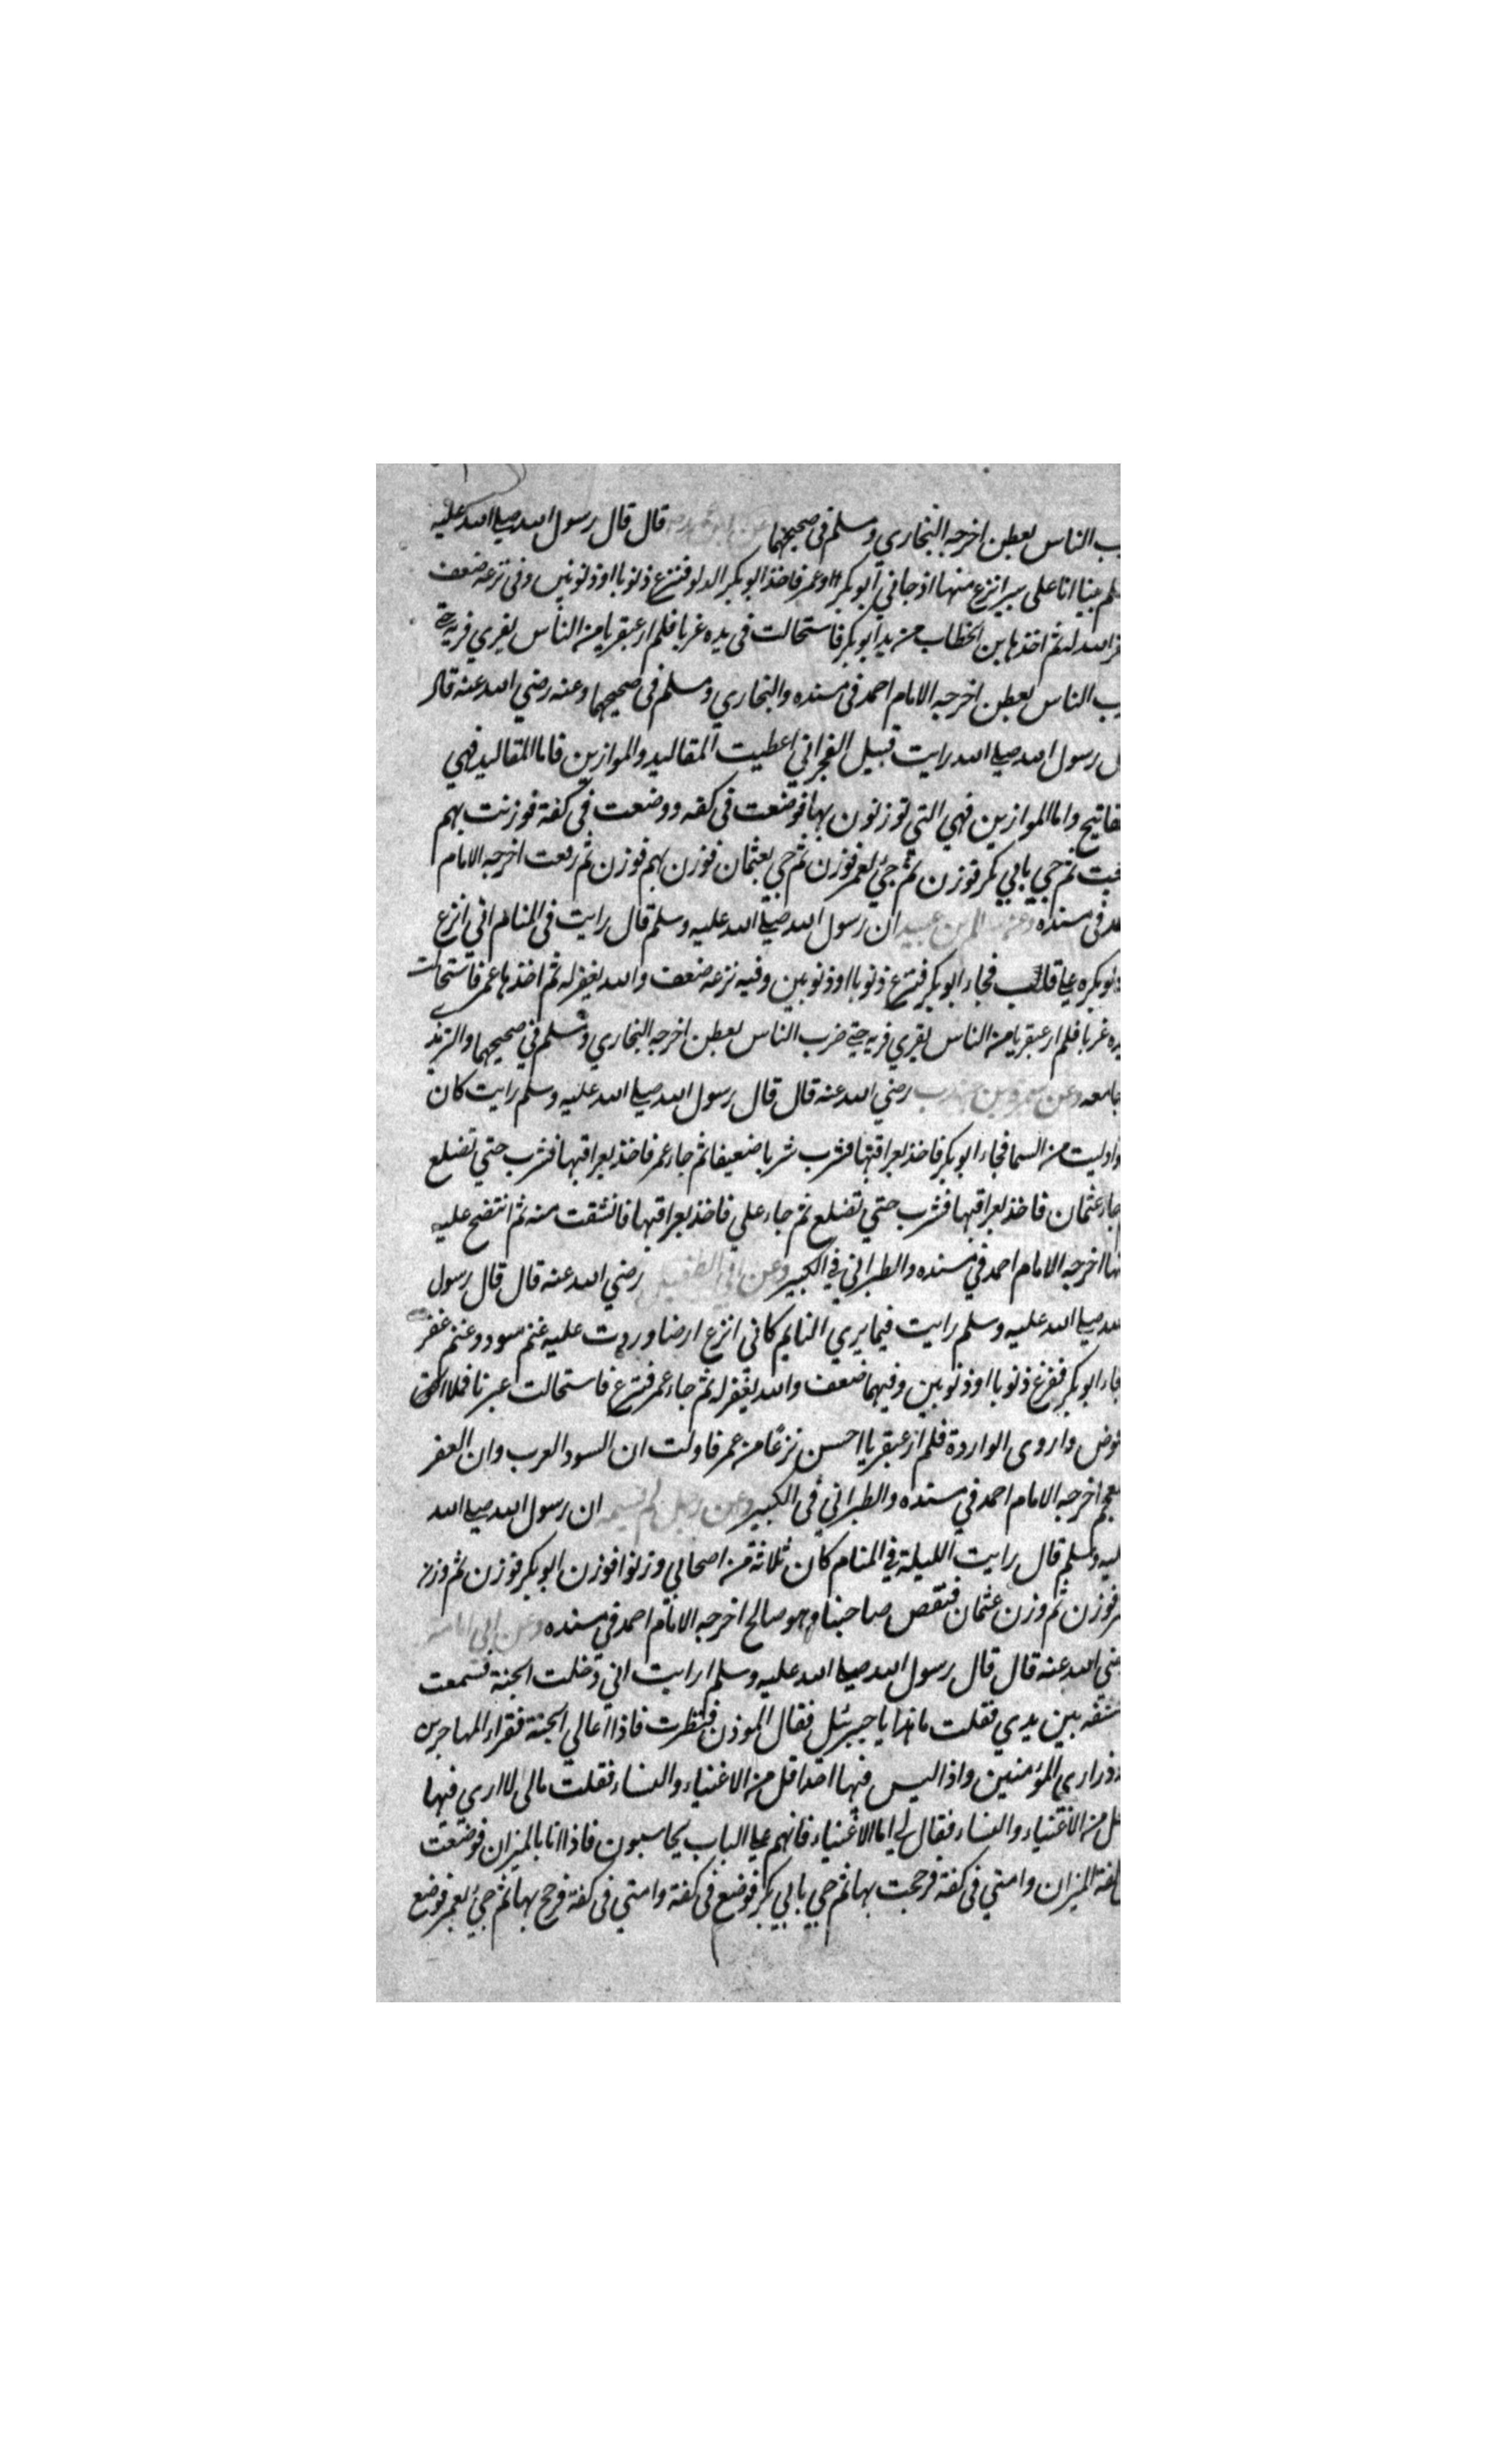 الناس بعطن اخرجه البخاري ومسلم في صحيحهما عن ابي هريرة قال قال رسول الله صلى الله عليه
بينا انا على بير انزع منها اذ جاني ابو بكر وعمر فاخذ ابو بكر الدلو فنزع ذنوبا او ذنوبين وفي نزعه ضعف
الله له ثم اخذها بن الخطاب من يد ابو بكر فاستحالت في يده غربا فلم ار عبقريا من الناس يفري فريه حتى
الناس بعطن اخرجه الامام احمد في مسنده والبخاري ومسلم في صحيحهما وعنه رضي الله عنه قال
رسول الله صلى الله رايت قبيل الفجر اني اعطيت المقاليد والموازين فاما المقاليد فهي
واما الموازين فهي التي توزنون بها فوضعت في كفه ووضعت في كفة فوزنت بهم
ثم جي بابي بكر فوزن ثم جي بعمر فوزن ثم جي بعثمان فوزن بهم فوزن ثم رفعت اخرجه الامام
في مسنده ان رسول الله صلى الله عليه وسلم قال رايت في المنام اني انزع
بكره على قليب فجاء ابو بكر فنزع ذنوبا او ذنوبين وفيه نزعه ضعف والله يغفر له ثم اخذها عمر فاستحالت
غربا فلم ار عبقريا من الناس يفري فريه حتى ضرب الناس بعطن اخرجه البخاري ومسلم في صحيحهما والترمذ
جامعه وعن سمرة بن جندب رضي الله عنه قال قال رسول الله صلى الله عليه وسلم رايت كان
دليت من السما فجاء ابو بكر فاخذ بعراقيها فشرب شربا ضعيفا ثم جاء عمر فاخذ بعراقيها فشرب حتي تضلع
جاء عثمان فاخذ بعراقيها فشرب حتي تضلع ثم جاء علي فاخذ بعراقيها فانشقت منه ثم انتضح عليه
اخرجه الامام احمد في مسنده والطبراني في الكبير وعن ابي الطفيل رضي الله عنه قال قال رسول
صلى الله عليه وسلم رايت فيما يري النايم كاني انزع ارضا وردت عليه غنم سود وغنم عفر
جاء ابو بكر فنزع ذنوبا او ذنوبين وفيهما ضعف والله يغفر له ثم جاء عمر فنزع فاستحالت غربا فملا
واروى الواردة فلم ار عبقريا احسن نزعا من عمر فاولت ان السود العرب وان العفر
اخرجه الامام احمد في مسنده والطبراني في الكبير وعن رجل لم يسمه ان رسول الله صلى الله
وسلم قال رايت الليلة في المنام كان ثلاثة من اصحابي وزنوا فوزن ابو بكر فوزن ثم وزن
فوزن ثم وزن عثمان فنقص صاحبنا وهو صالح اخرجه الامام احمد في مسنده وعن ابي امامة
الله عنه قال قال رسول الله صلى الله عليه وسلم ارايت اني دخلت الجنة فسمعت
بين يدي فقلت ما هذا يا جبرئيل فقال الموذن فنظرت فاذا اعالي الجنة فقراء المهاجرين
وذراري المؤمنين واذا ليس فيها احدا قل من الاغنياء والنساء فقلت مالي لا اري فيها
من الاغنياء والنساء فقال لي اما الاغنياء فانهم على الباب يحاسبون فاذا انا بالميزان فوضعت
الميزان وامتي في كفة فرجحت بها ثم جي بابي بكر فوضع في كفة وامتي في كفة فرجح بها ثم جي بعمر فوضع